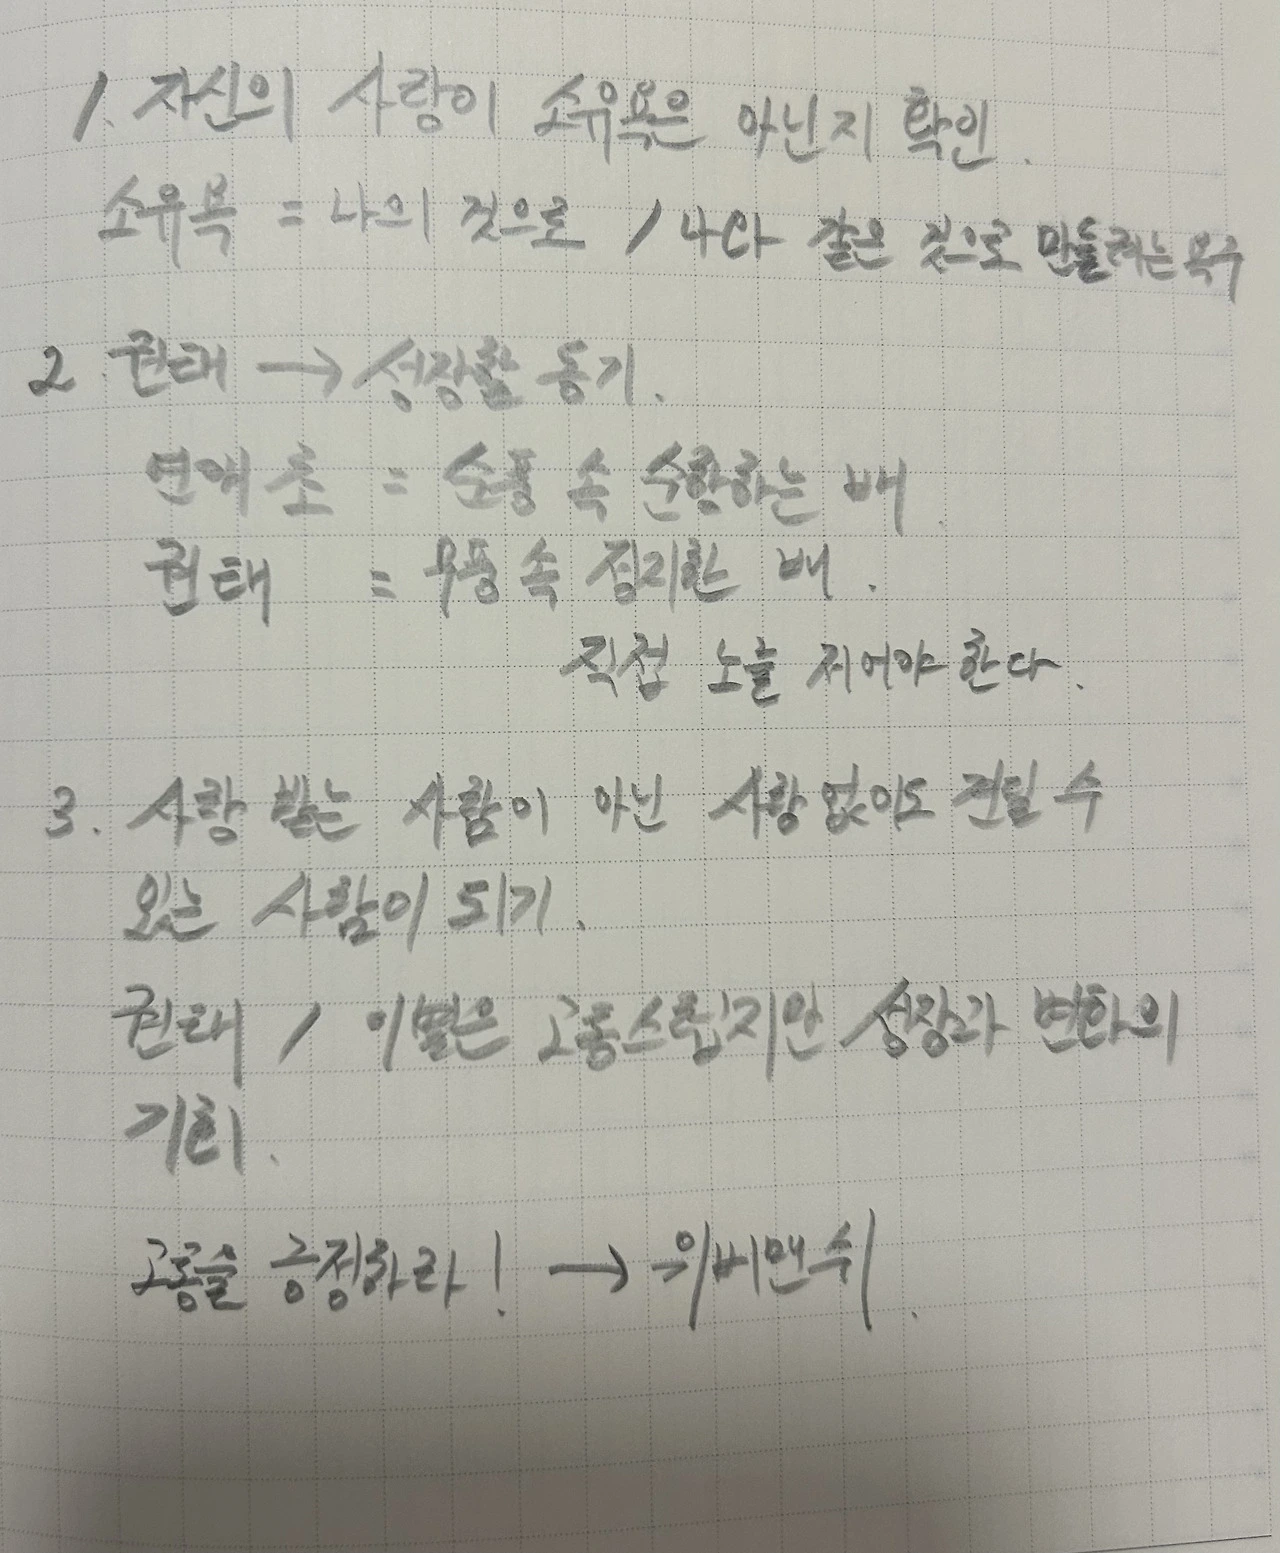 1. 자신의 사랑이 소유욕은 아닌지 확인.
소유욕 = 나의 것으로 / 나와 같은 것으로 만들려는 욕구
2. 권태 → 성장할 동기.
연애 초 = 순풍 속 순항하는 배.
권태 = 무풍 속 정지한 배.
직접 노를 저어야 한다.
3. 사랑 받는 사람이 아닌 사랑 없이도 견딜 수
있는 사람이 되기.
권태 / 이별은 고통스럽지만 성장과 변화의
기회.
고통을 긍정하라! → 위버멘쉬.